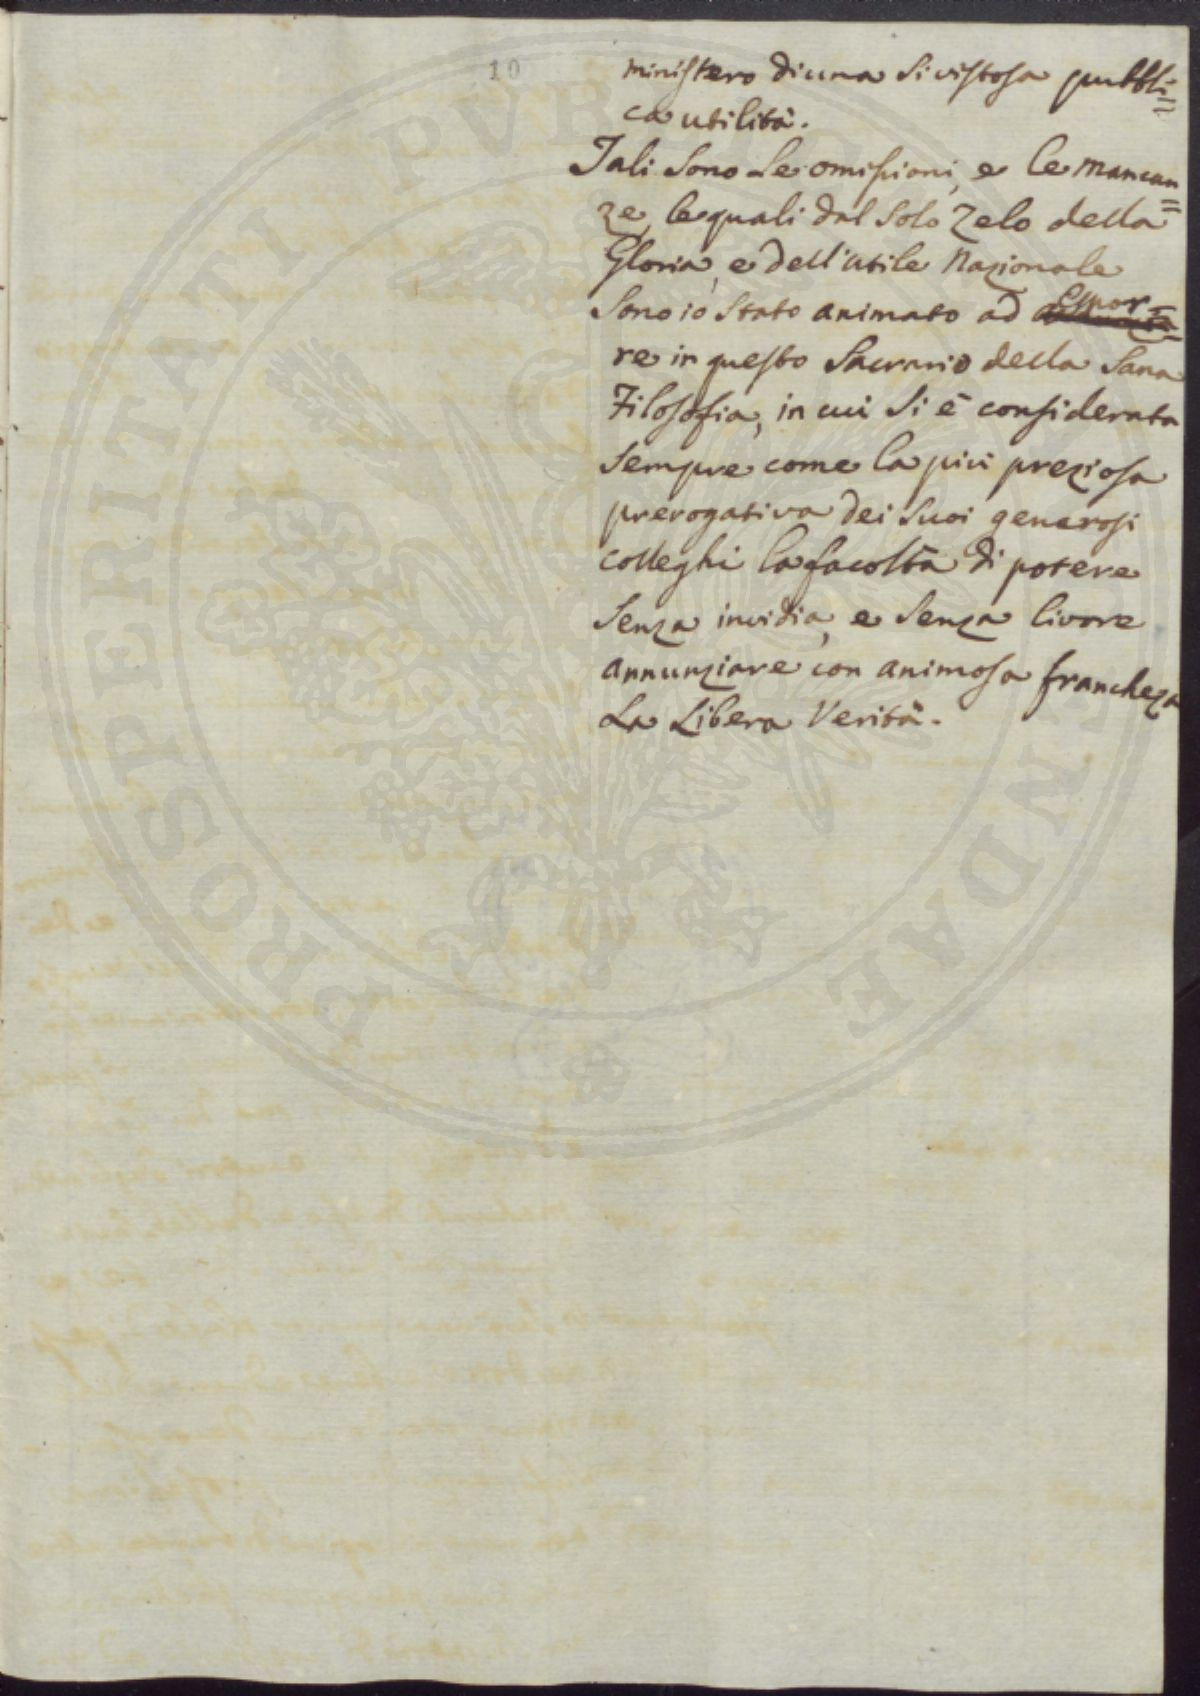 10
ministero di una si vistosa pubbli=
ca utilità.
Tali sono le omissioni, e le mancan=
ze, le quali dal solo zelo della
Gloria, e dell'utile Nazionale
sono io stato animato ad Espor=
re in questo Sacrario della Sana
Filosofia, in cui si è considerata
sempre come la più preziosa
prerogativa dei suoi generosi
colleghi la facoltà di potere
senza invidia, e senza livore
annunziare con animosa francheza
La Libera Verità.
PROSPERITATI PUBLICAE AUGENDAE